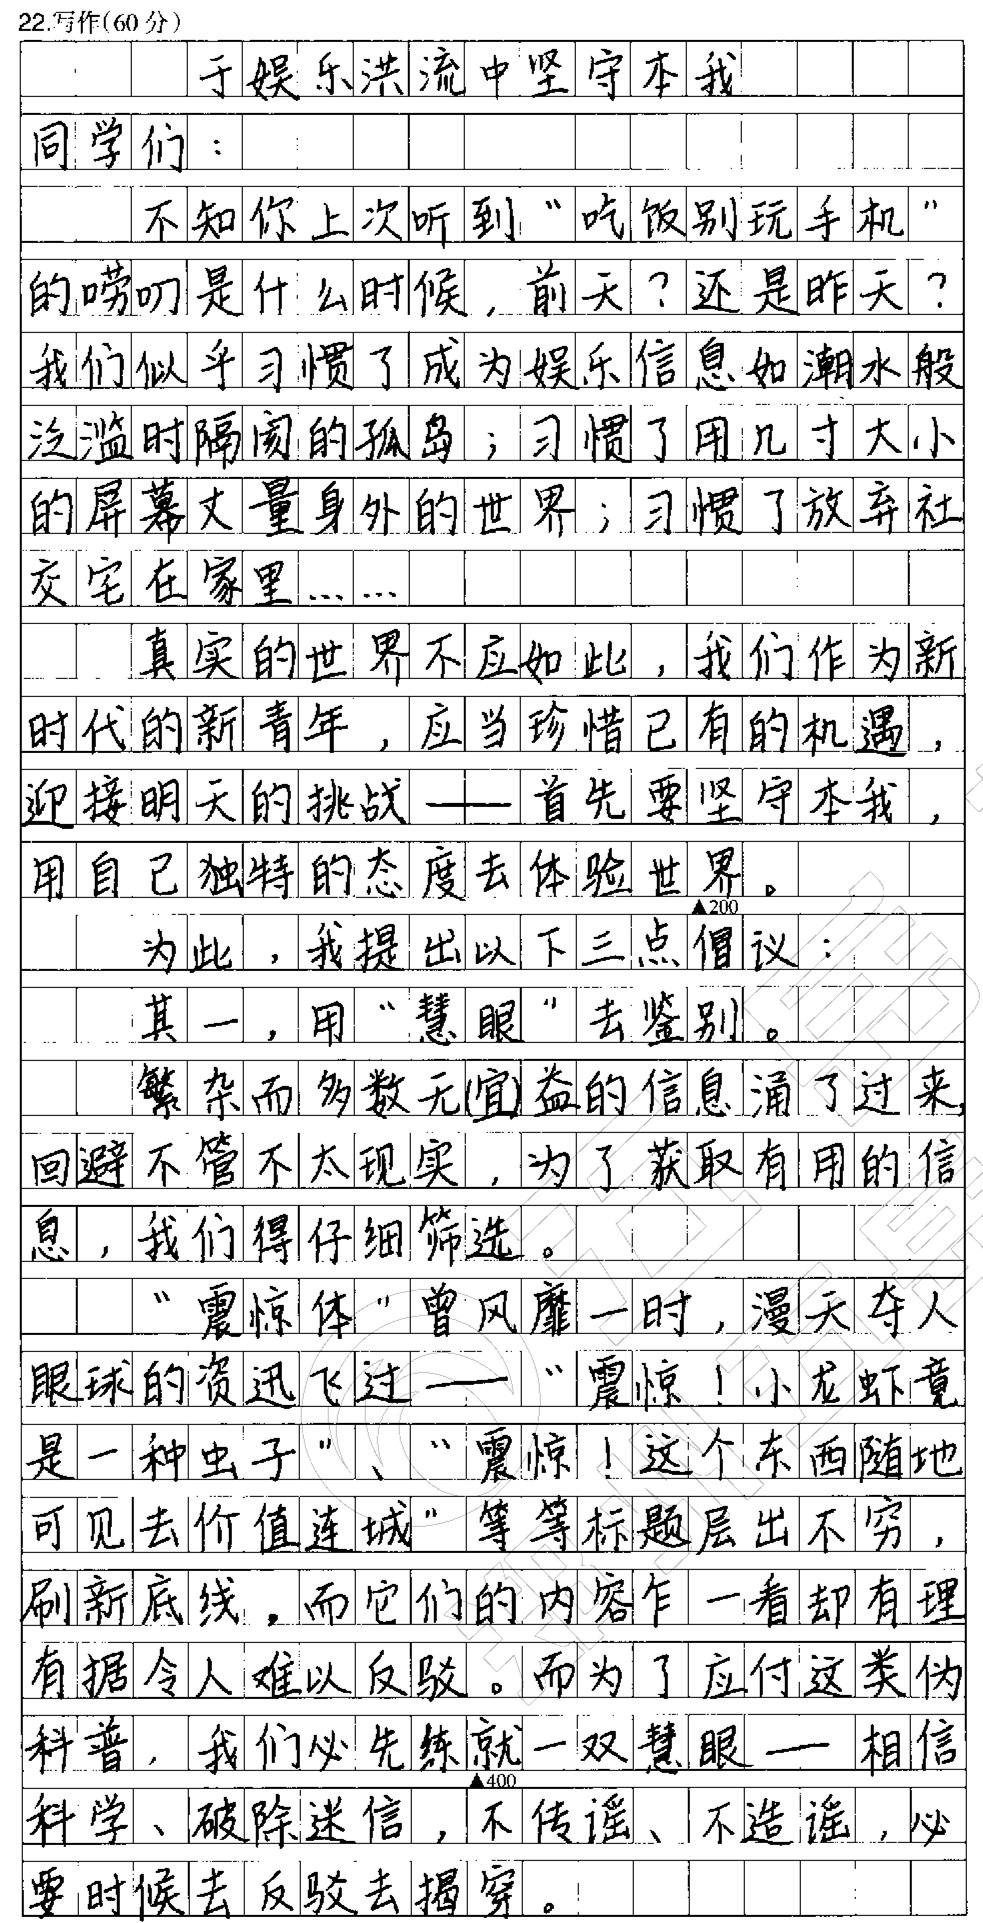 22.写作(60分)
于娱乐洪流中坚守本我
同学们:
不知你上次听到“吃饭别玩手机”
的唠叨是什么时候,前天?还是昨天?
我们似乎习惯了成为娱乐信息如潮水般
泛滥时隔阂的孤岛;习惯了用几寸大小
的屏幕丈量身外的世界;习惯了放弃社
交宅在家里……
真实的世界不应如此,我们作为新
时代的新青年,应当珍惜已有的机遇,
迎接明天的挑战——首先要坚守本我,
用自己独特的态度去体验世界。
▲200
为此,我提出以下三点倡议:
其一,用“慧眼”去鉴别。
繁杂而多数无(宜)益的信息涌了过来,
回避不管不太现实,为了获取有用的信
息,我们得仔细筛选。
“震惊体”曾风靡一时,漫天夺人
眼球的资迅飞过——“震惊!小龙虾竟
是一种虫子”、“震惊!这个东西随地
可见去价值连城”等等标题层出不穷,
刷新底线。而它们的内容乍一看却有理
有据令人难以反驳。而为了应付这类伪
科普,我们必先练就一双慧眼——相信
▲400
科学、破除迷信,不传谣、不造谣,必
要时候去反驳去揭穿。